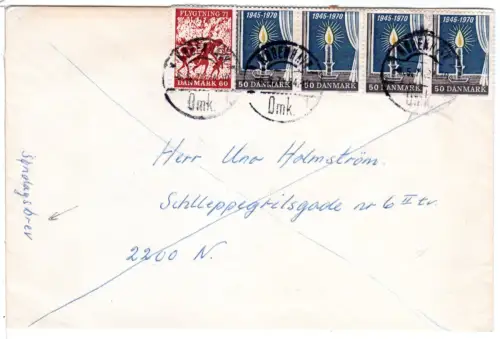 FLYGTNING 71
DANMARK 60
1945-1970
50 DANMARK
1945-1970
50 DANMARK
1945-1970
50 DANMARK
1945-1970
50 DANMARK
Omk.
Omk.
Omk.
Herr Uno Holmström.
Schlleppegrilsgade nr 6 II tv.
2200 N.
Søndagsbrev